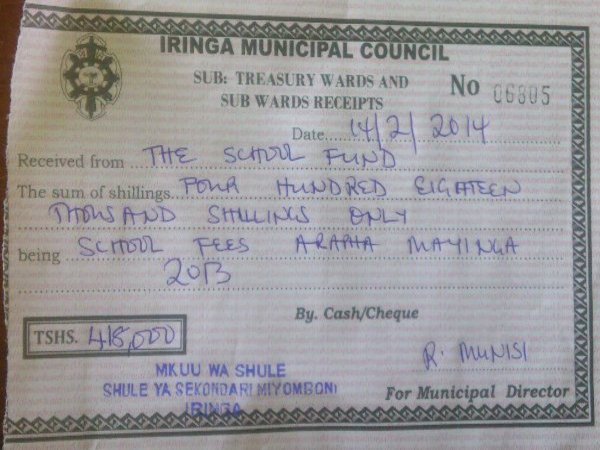 IRINGA MUNICIPAL COUNCIL
SUB: TREASURY WARDS AND
SUB WARDS RECEIPTS
No 06805
Date 14/2/2014
Received from THE SCHOOL FUND
The sum of shillings FOUR HUNDRED EIGHTEEN
THOUSAND SHILLINGS ONLY
being SCHOOL FEES ARAPHA MAYINGA
2013
By. Cash/Cheque
TSHS. 418,000
R. MUNISI
MKUU WA SHULE
SHULE YA SEKONDARI MIYOMBONI
IRINGA
For Municipal Director